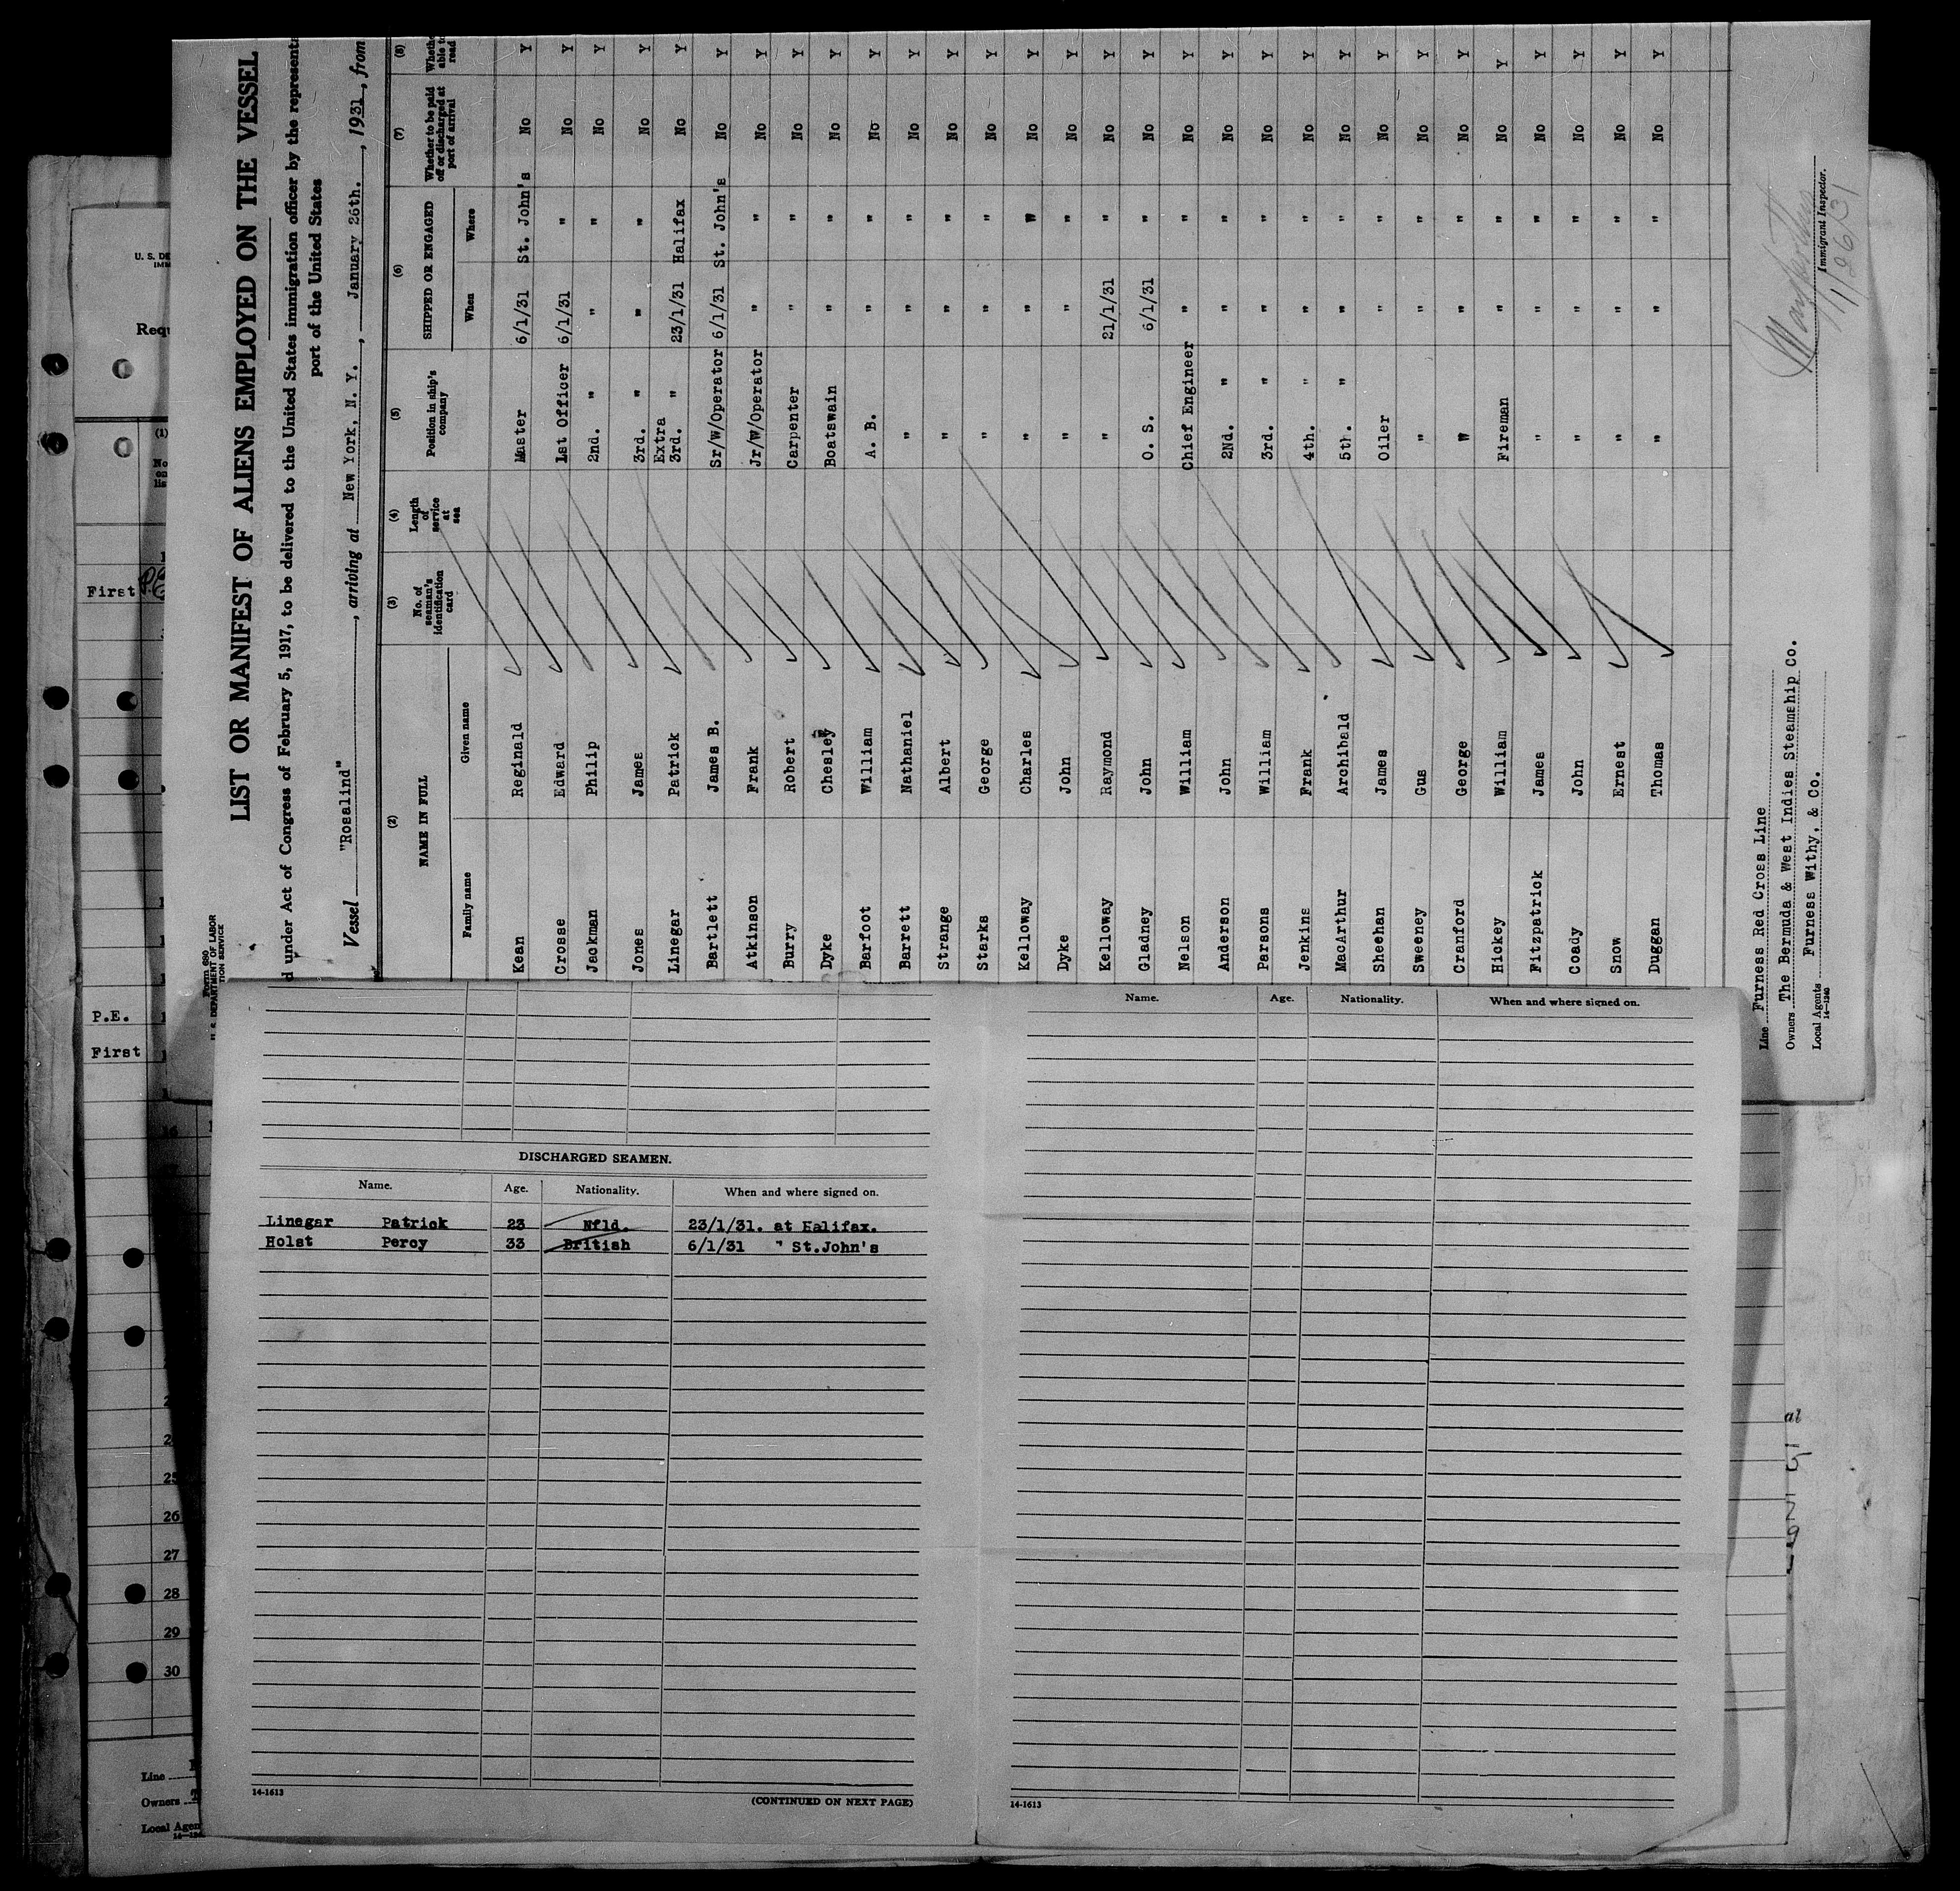 LIST OR MANIFEST OF ALIENS EMPLOYED ON THE VESSEL
d under Act of Congress of February 5, 1917, to be delivered to the United States immigration officer by the representa
port of the United States
Vessel "Rosalind", arriving at New York, N. Y., January 26th., 1931, from
(2) (3) (4) (5) (6) (7) (8)
NAME IN FULL No. of seaman's identification card Length of service at sea Position in ship's company SHIPPED OR ENGAGED Whether to be paid off or discharged at port of arrival Whethe able to read
Family name Given name When Where
Kean Reginald Master 6/1/31 St. John's No Y
Crosse Edward 1st Officer 6/1/31 " No Y
Jackman Philip 2nd. " " " No Y
Jones James 3rd. " " " No Y
Linegar Patrick Extra 3rd. " 23/1/31 Halifax No Y
Bartlett James B. Sr/W/Operator 6/1/31 St. John's No Y
Atkinson Frank Jr/W/Operator " " No Y
Burry Robert Carpenter " " No Y
Dyke Chesley Boatswain " " No Y
Barfoot William A. B. " " No Y
Barrett Nathaniel " " " No Y
Strange Albert " " " No Y
Starks George " " " No Y
Kelloway Charles " " " No Y
Dyke John " " " No Y
Kelloway Raymond " 21/1/31 " No Y
Gladney John O. S. 6/1/31 " No Y
Nelson William Chief Engineer " " No Y
Anderson John 2Nd. " " " No Y
Parsons William 3rd. " " " No Y
Jenkins Frank 4th. " " " No Y
MacArthur Archibald 5th. " " " No Y
Sheehan James Oiler " " No Y
Sweeney Gus " " " No Y
Cranford George " " " No Y
Hickey William Fireman " " No Y
Fitzpatrick James " " " No Y
Coady John " " " No Y
Snow Ernest " " " No Y
Duggan Thomas " " " No Y
Line Furness Red Cross Line
Owners The Bermuda & West Indies Steamship Co.
Local Agents Furness Withy, & Co.
14-1240
Immigrant Inspector.
Form 680
U. S. DEPARTMENT OF LABOR
TION SERVICE
Name. Age. Nationality. When and where signed on.
DISCHARGED SEAMEN.
Name. Age. Nationality. When and where signed on.
Linegar Patrick 23 Nfld. 23/1/31. at Halifax.
Holst Percy 33 British 6/1/31 " St.John's
14-1613
(CONTINUED ON NEXT PAGE)
14-1613
U. S. DE
Requ
(1)
First
P.E.
First
26
27
28
29
30
Line
Owners
Local Agen